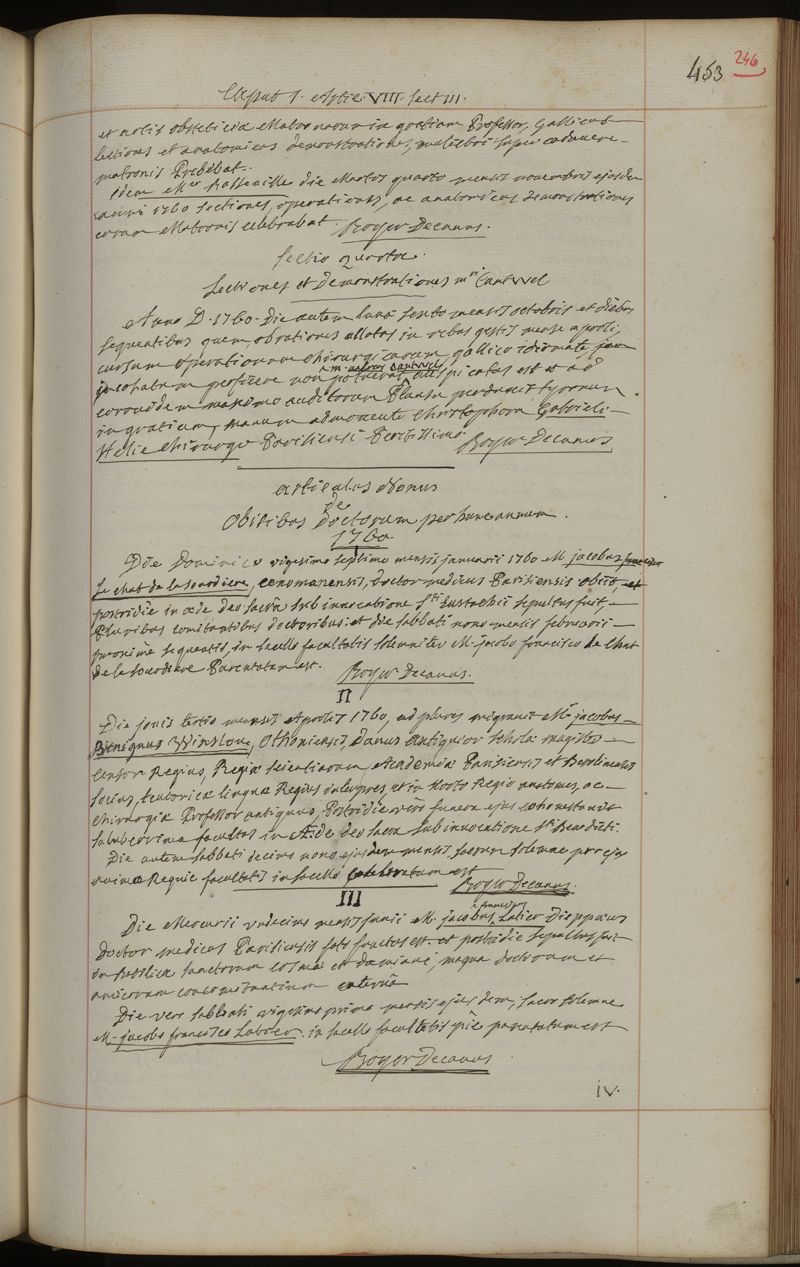 453 246
Caput 1. Artic. VIII. Sect III.
et artis obstetriciæ Matronarum in gratiam Professor, Gallicas
lectiones et anatomicas demonstrationes, muliebri super cadavere
matronis Præbebat.
Idem Mer die Martis quarto mensis novembris ejusdem
anni 1760 lectiones, operationes, ac anatomicas demonstrationes
coram Matronis celebrabat. Boyer Decanus.
Sectio quarta.
Lectiones et Demonstrationes mri Cantwel
Anno D. 1760. Die autem lunæ sexto mensis octobris et diebus
sequentibus quem, ob rationes allatas in rebus gestis mense aprili,
cursum operationum chirurgicarum gallico idiomate, jam
incohatum proficere non potuerat m. andreas Cantwel auspicatus est et ad
coronidem maximo auditorum Plausu perduxit tyronum
in gratiam, manum admovente Christophoro Gabrieli
Helie chirurgo Parisiensi Peritissimo. Boyer Decanus
articulus Nonus
de
Obitibus Doctorum per hunc annum.
1760
Die Dominico vigesimo septimo mensis januarii 1760 M. jacobus franciscus
le chat de la Sourdiere, cenomanensis, Doctor medicus Parisiensis obiit, et
postridie in æde deo sacra sub invocatione Sti Eustachii sepultus fuit,
Pluribus comitantibus doctoribus: et die sabbati nono mensis februarii
proxime sequentis, in sacello facultatis solemniter M. jacobo francisco le Chat
de la Sourdiere Parentatum est. Boyer Decanus.
II
Die jovis tertio mensis Aprilis 1760, ad plures migravit Mr jacobus
Benignus Winslow, Othoniensis, Danus Antiquior scholæ magister
Censor Regius, Regiæ scientiarum Academiæ Parisiensis et Berolinensis
socius, teutonicæ linguæ Regius interpres, et in Horto Regio anatomes, ac
chirurgiæ Professor antiquus, Postridie vero funera ejus cohonestavit
saluberrima facultas in Æde deo sacra sub invocatione Sti Benedicti.
Die autem sabbati decimo nono ejusdem mensis, sacrum solemne pro ejus
animæ Requie facultatis in sacello celebratum est Boyer Decanus.
III
Die Mercurii undecimo mensis junii M. jacobus franciscus Latier Dieppæus
Doctor medicus Parisiensis fato functus est. et postridie sepultus fuit
in Basilica sanctorum cosmæ et damiani, magna doctorum et
amicorum concomitantium caterva
Die vero sabbati vigesimo primo mensis ejusdem, sacro solemne
M. jacobo francisco Latier. in sacello facultatis pie parentatum est
Boyer Decanus
iv.